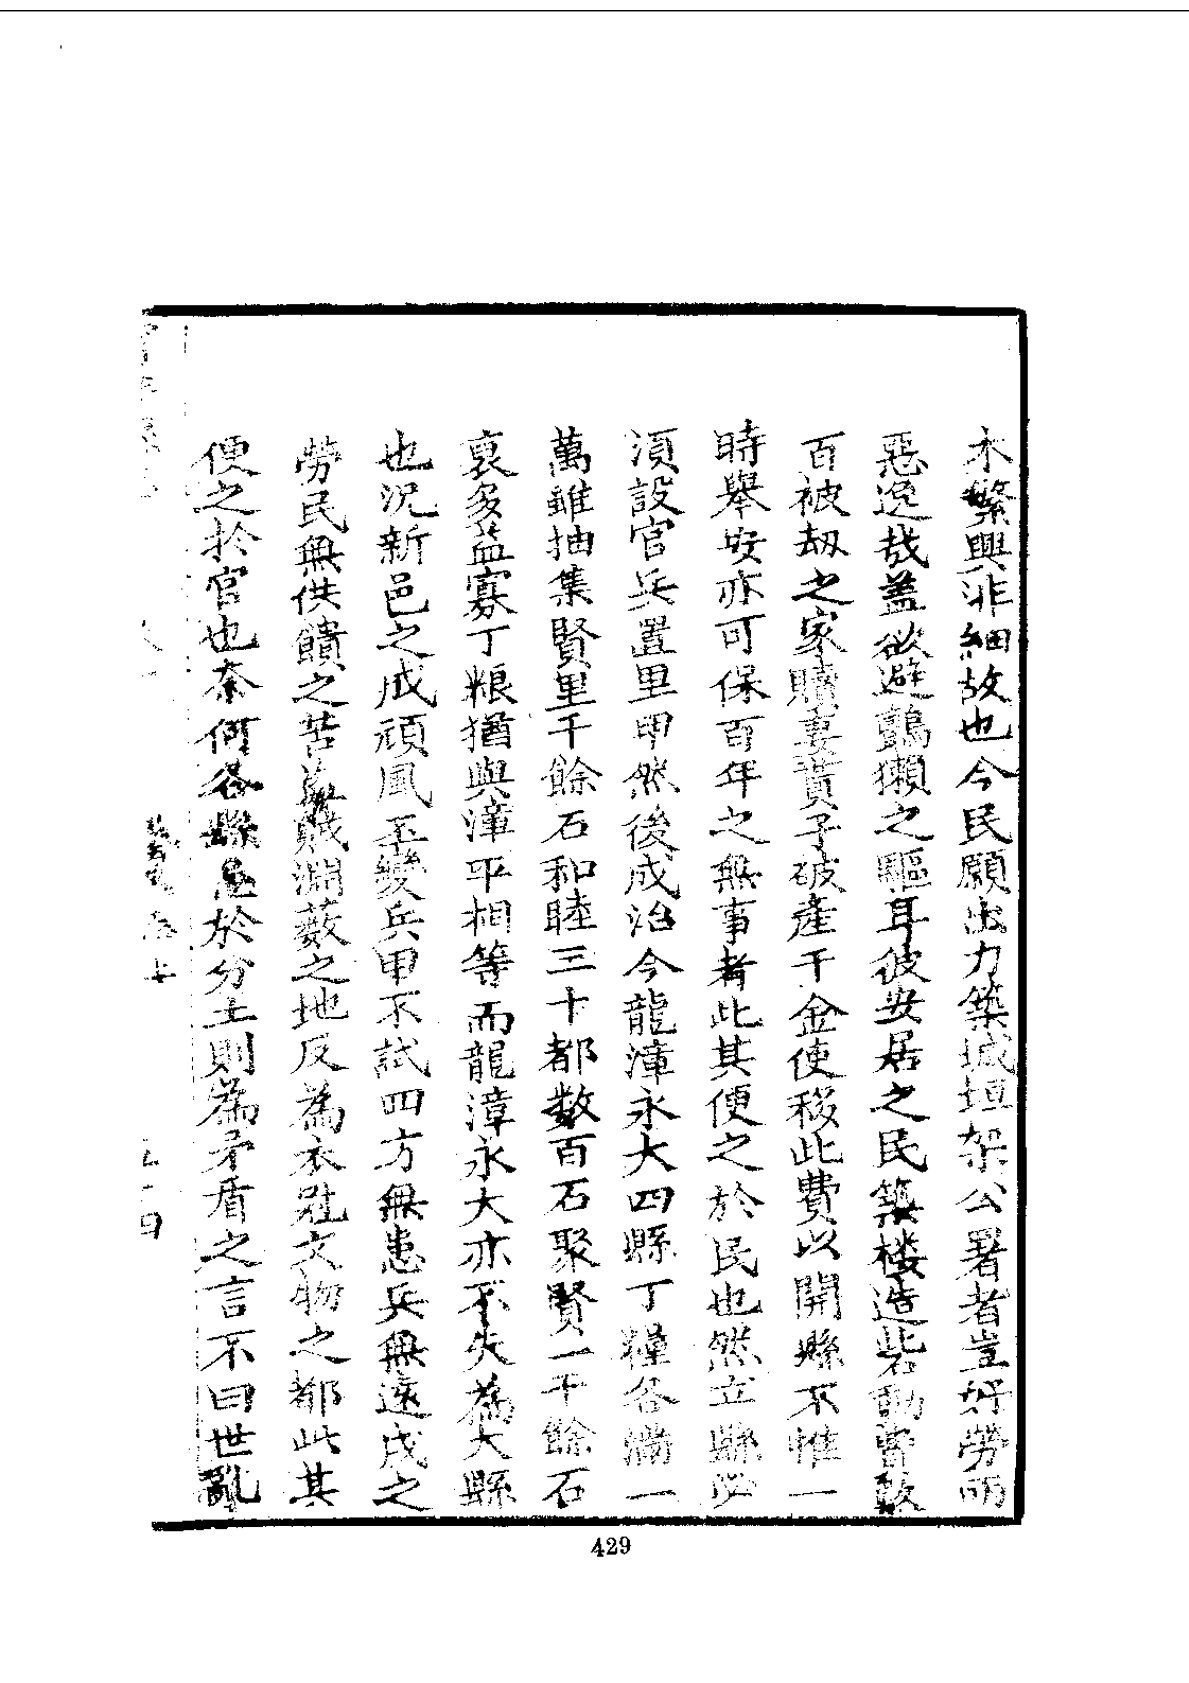 木繁興非細故也今民願出力築城垣架公署者豈好勞而
惡逸哉蓋欲避鸇獺之驅耳彼安居之民築楼造砦動曾數
百被刼之家贖妻賣子破產千金使移此費以開縣不惟一
時舉安亦可保百年之無事者此其便之於民也然立縣必
須設官兵置里甲然後成治今龍漳永大四縣丁糧各滿一
萬雖抽集賢里千餘石和睦三十都数百石聚賢一千餘石
裒多益寡丁粮猶與漳平相等而龍漳永大亦不失為大縣
也况新邑之成頑風丕變兵甲不試四方無患兵無遠戍之
勞民無供饋之苦萑賊淵薮之地反為衣冠文物之都此其
便之扵官也奈何各縣邑於分土則為矛盾之言不曰世亂
429